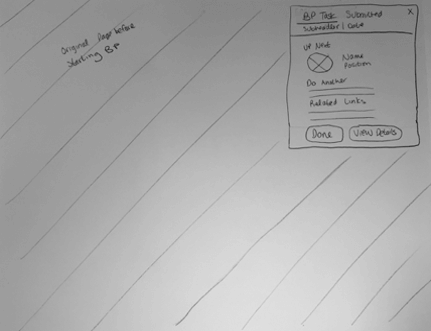 Original Page before
Starting BP
BP Task Submitted
X
Submitter | Date
UP Next
Name
Position
Do Another
Related Links
Done
View Details